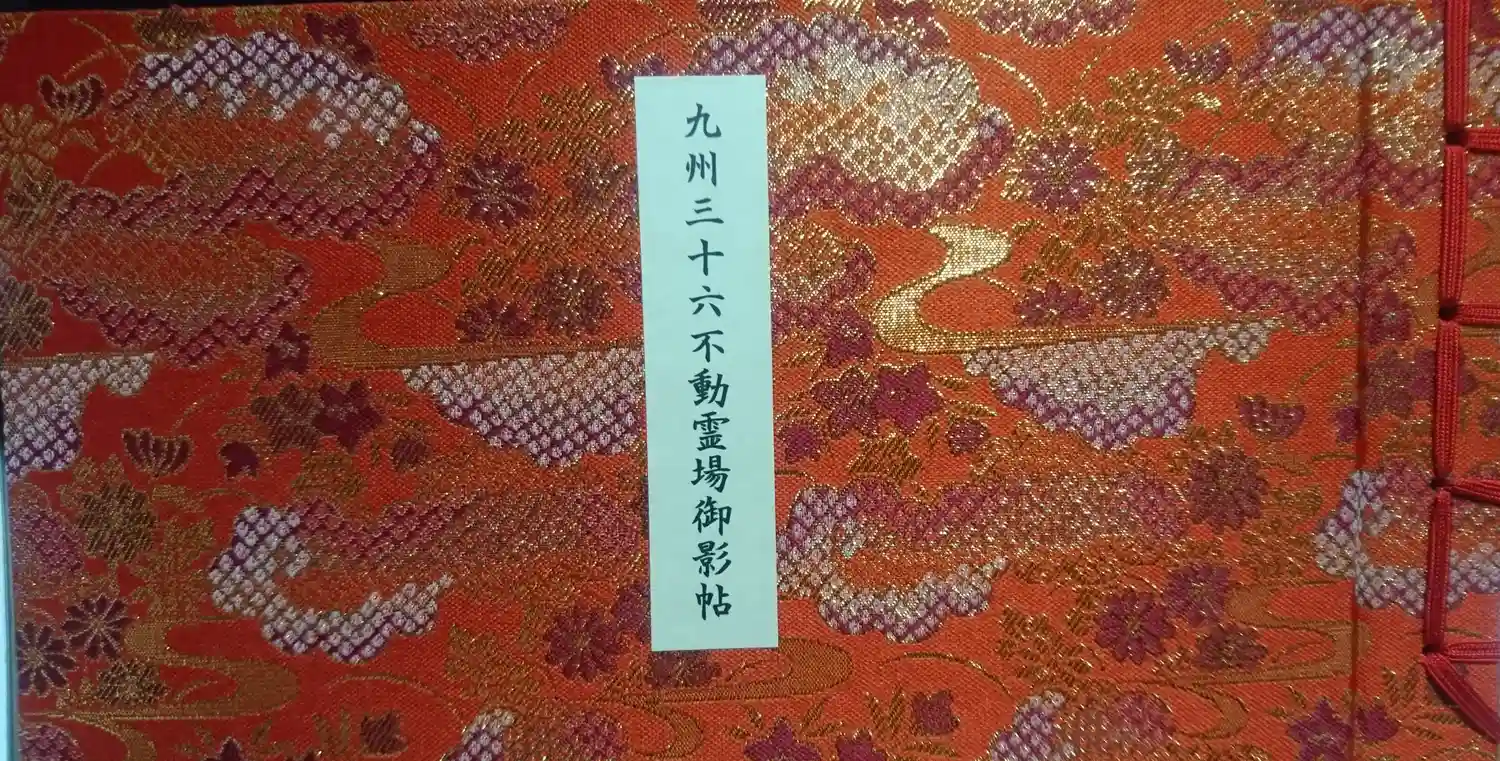 九州三十六不動霊場御影帖